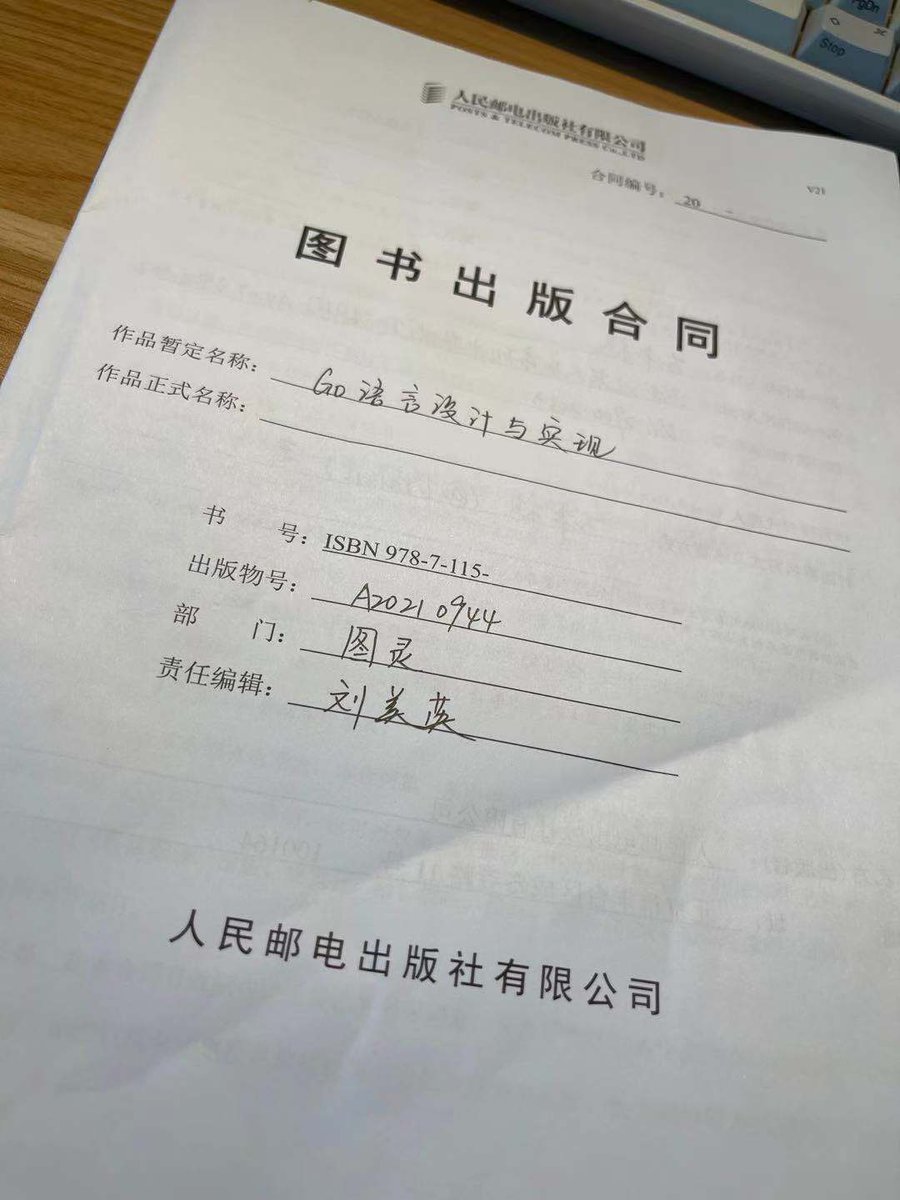 PgDn
Stop
人民邮电出版社有限公司
POSTS & TELECOM PRESS Co.,LTD
V21
合同编号：20
图书出版合同
作品暂定名称：Go语言设计与实现
作品正式名称：
书 号：ISBN 978-7-115-
出版物号：A20210944
部 门：图灵
责任编辑：刘美英
人民邮电出版社有限公司